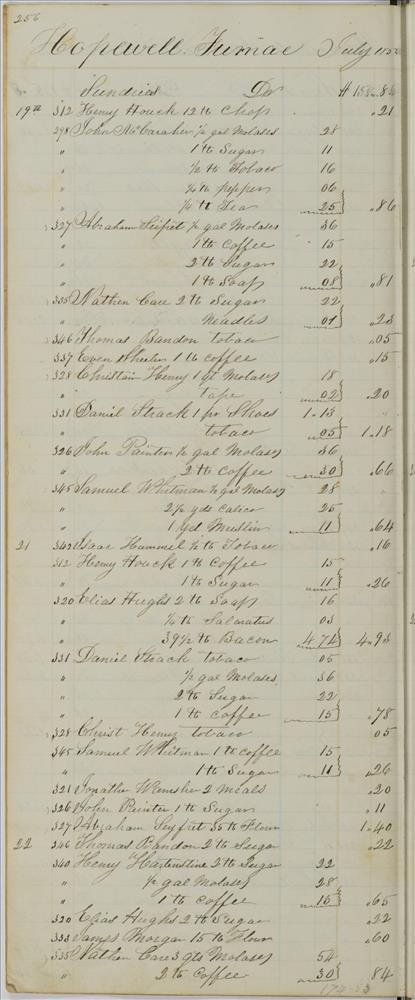 256
Hopewell Furnac July 185
Sundries Dr $ 158.86
19th 312 Henry Houck 12 lb Chop .21
298 John McCaraher ½ gal Molases 28
" 1 lb Sugar 11
" ½ lb Tobaco 16
" ¼ lb pepper 06
" ¼ lb Tea 25 .86
327 Abraham Seifret ½ gal Molases 36
" 1 lb Coffee 15
" 2 lb Sugar 22
" 1 lb Soap 08 .81
335 Nathen Care 2 lb Sugar 22
" Needles 01 .23
346 Thomas Bandon tobaco .05
337 Even Wheeler 1 lb coffee .15
328 Christian Henry 1 qt Molases 18
" tape 02 .20
331 Daniel Strack 1 pr Shoes 1.13
" tobaco 05 1.18
326 John Painter ½ gal Molases 36
" 2 lb Coffee 30 .66
345 Samuel Whitman ½ gal Molases 28
" 2½ yds Calico 25
" 1 yd Muslin 11 .64
21 343 Isaac Hummel ½ lb Tobaco .16
312 Henry Houck 1 lb Coffee 15
" 1 lb Sugar 11 .26
320 Elias Hughs 2 lb Soap 16
" ¼ lb Salaratus 03
" 39½ lb Bacon 4.74 4.93
331 Daniel Strack tobaco 05
" ½ gal Molases 36
" 2 lb Sugar 22
" 1 lb Coffee 15 .78
328 Christ Henry tobaco 05
345 Samuel Whitman 1 lb coffee 15
" 1 lb Sugar 11 .26
321 Jonathan 2 Meals .20
326 John Painter 1 lb Sugar .11
327 Abraham Seyfret 35 lb Flour 1.40
22 346 Thomas Bandon 2 lb Sugar .22
340 Henry Hartenstine 2 lb Sugar 22
" ½ gal Molases 28
" 1 lb Coffee 15 .65
320 Elias Hughs 2 lb Sugar .22
333 James Morgan 15 lb Flour .60
335 Nathen Care 3 qts Molases 54
" 2 lb Coffee 30 84